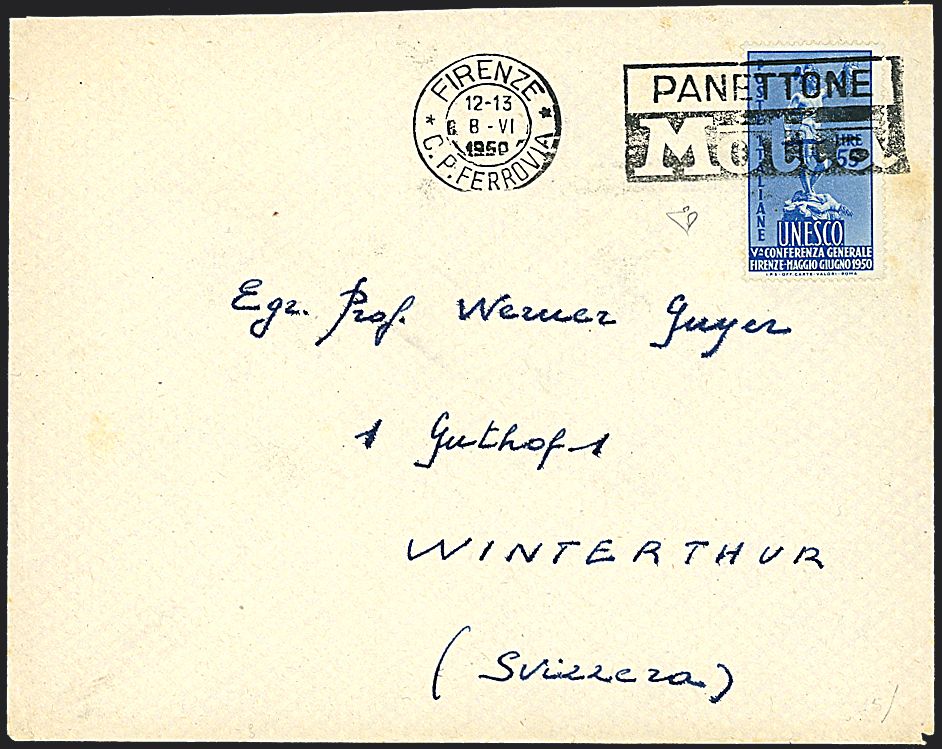 FIRENZE
12-13
8-VI
1950
* C.P. FERROVIA *
PANETTONE
Motta
POSTE ITALIANE
LIRE
55
UNESCO
Vª CONFERENZA GENERALE
FIRENZE-MAGGIO GIUGNO 1950
I.P.S.-OFF.CARTE-VALORI-ROMA
Egr. Prof. Werner Guyer
1 Guthof 1
WINTERTHUR
(Svizzera)